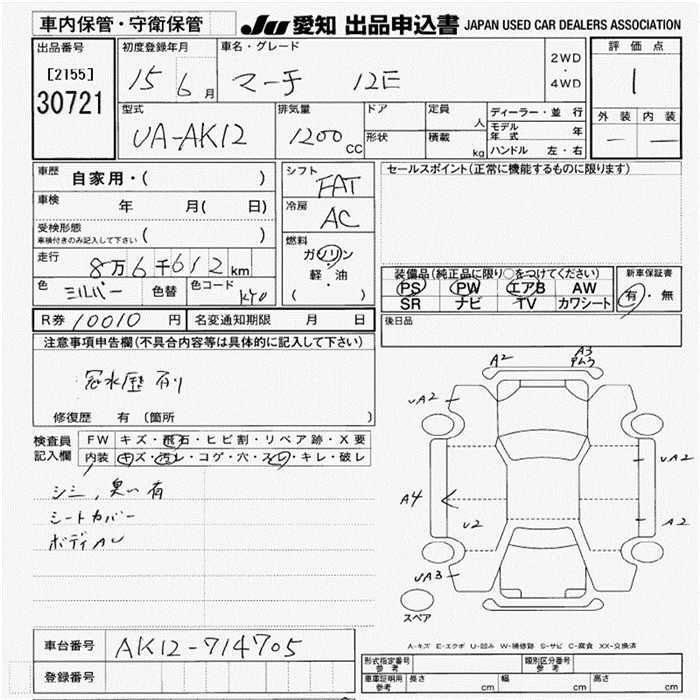 車内保管・守衛保管
JU 愛知 出品申込書 JAPAN USED CAR DEALERS ASSOCIATION
出品番号
[2155]
30721
初度登録年月
15 6月
車名・グレード
マーチ 12E
2WD
・
4WD
評価点
1
外装 内装
― ―
型式
UA-AK12
排気量
1200 CC
ドア
形状
定員 人
積載 kg
ディーラー・並行
モデル年式 年
ハンドル 左・右
車歴
自家用・( )
車検
年 月( 日)
受検形態
車検付きのみ記入して下さい ( )
走行
8万6千612km
色
シルバー 色替
色コード
KY0
シフト
FAT
冷房
AC
燃料
ガソリン
軽・油
( )
セールスポイント(正常に機能するものに限ります)
装備品(純正品に限り○をつけてください)
PS PW エアB AW
SR ナビ TV カワシート
新車保証書
有・無
後日品
R券 10010 円
名変通知期限 月 日
注意事項申告欄(不具合内容等は具体的に記入して下さい)
冠水歴 有り
修復歴 有 〔箇所 〕
検査員
記入欄
FW キズ・飛石・ヒビ割・リペア跡・X要
内装 キズ・汚レ・コゲ・穴・スレ・キレ・破レ
シミ,臭い有
シートカバー
ボディAU
A2
A3
UA2
UA2
A4
U2
A2
UA3
スペア
A-キズ E-エクボ U-凹み W-補修跡 S-サビ C-腐食 XX-交換済
車台番号
AK12-714705
登録番号
形式指定番号
参考
類別区分番号
参考
車庫証明用
参考
長さ cm 幅 cm 高さ cm